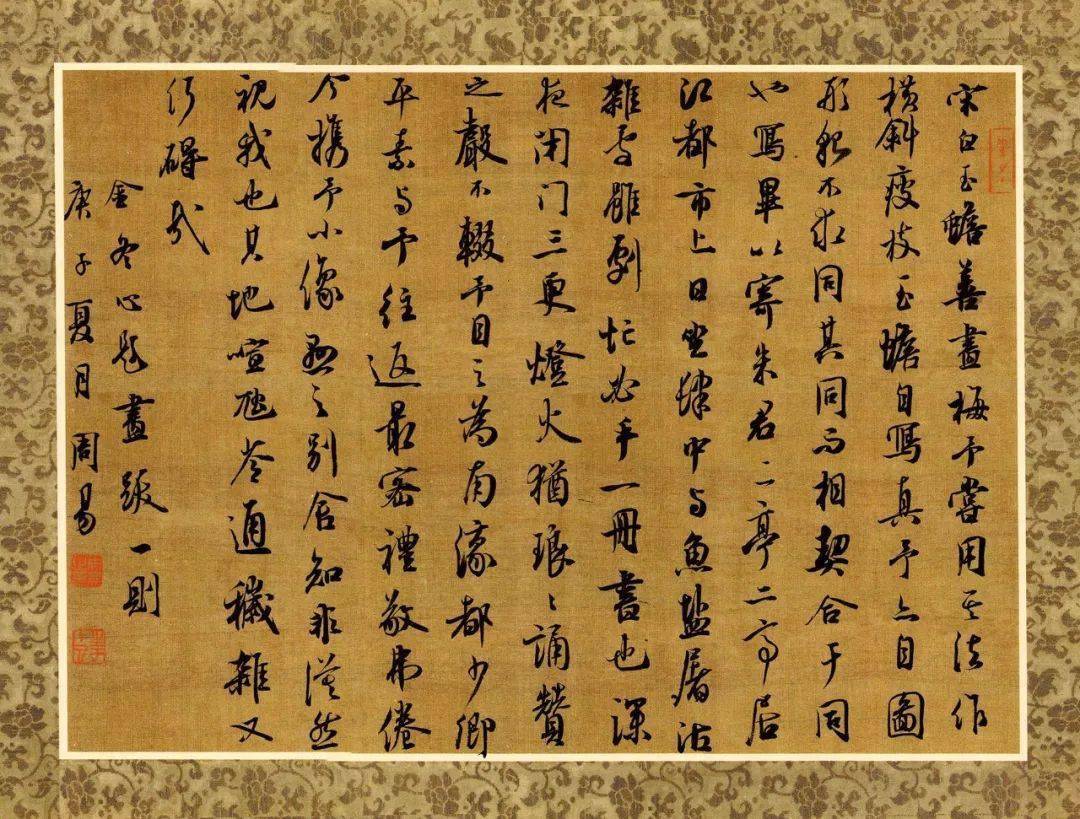 宋白玉蟾善畫梅予嘗用其法作
橫斜瘦枝玉蟾自寫真予亦自圖
形貌不求同其同而相契合于同
也寫畢以寄朱君二亭二亭居
江都市上日坐肆中与魚盐屠沽
雜處雖劇忙必手一冊書也深
夜闭门三更燈火猶琅〻誦贊
之聲不輟予目之為南濠都少卿
平素与予往返最密禮敬弗倦
今携予小像懸之别舍知非漠然
視我也其地喧逼穢雜又
何碍哉
金冬心題畫跋一則
庚子夏月周易